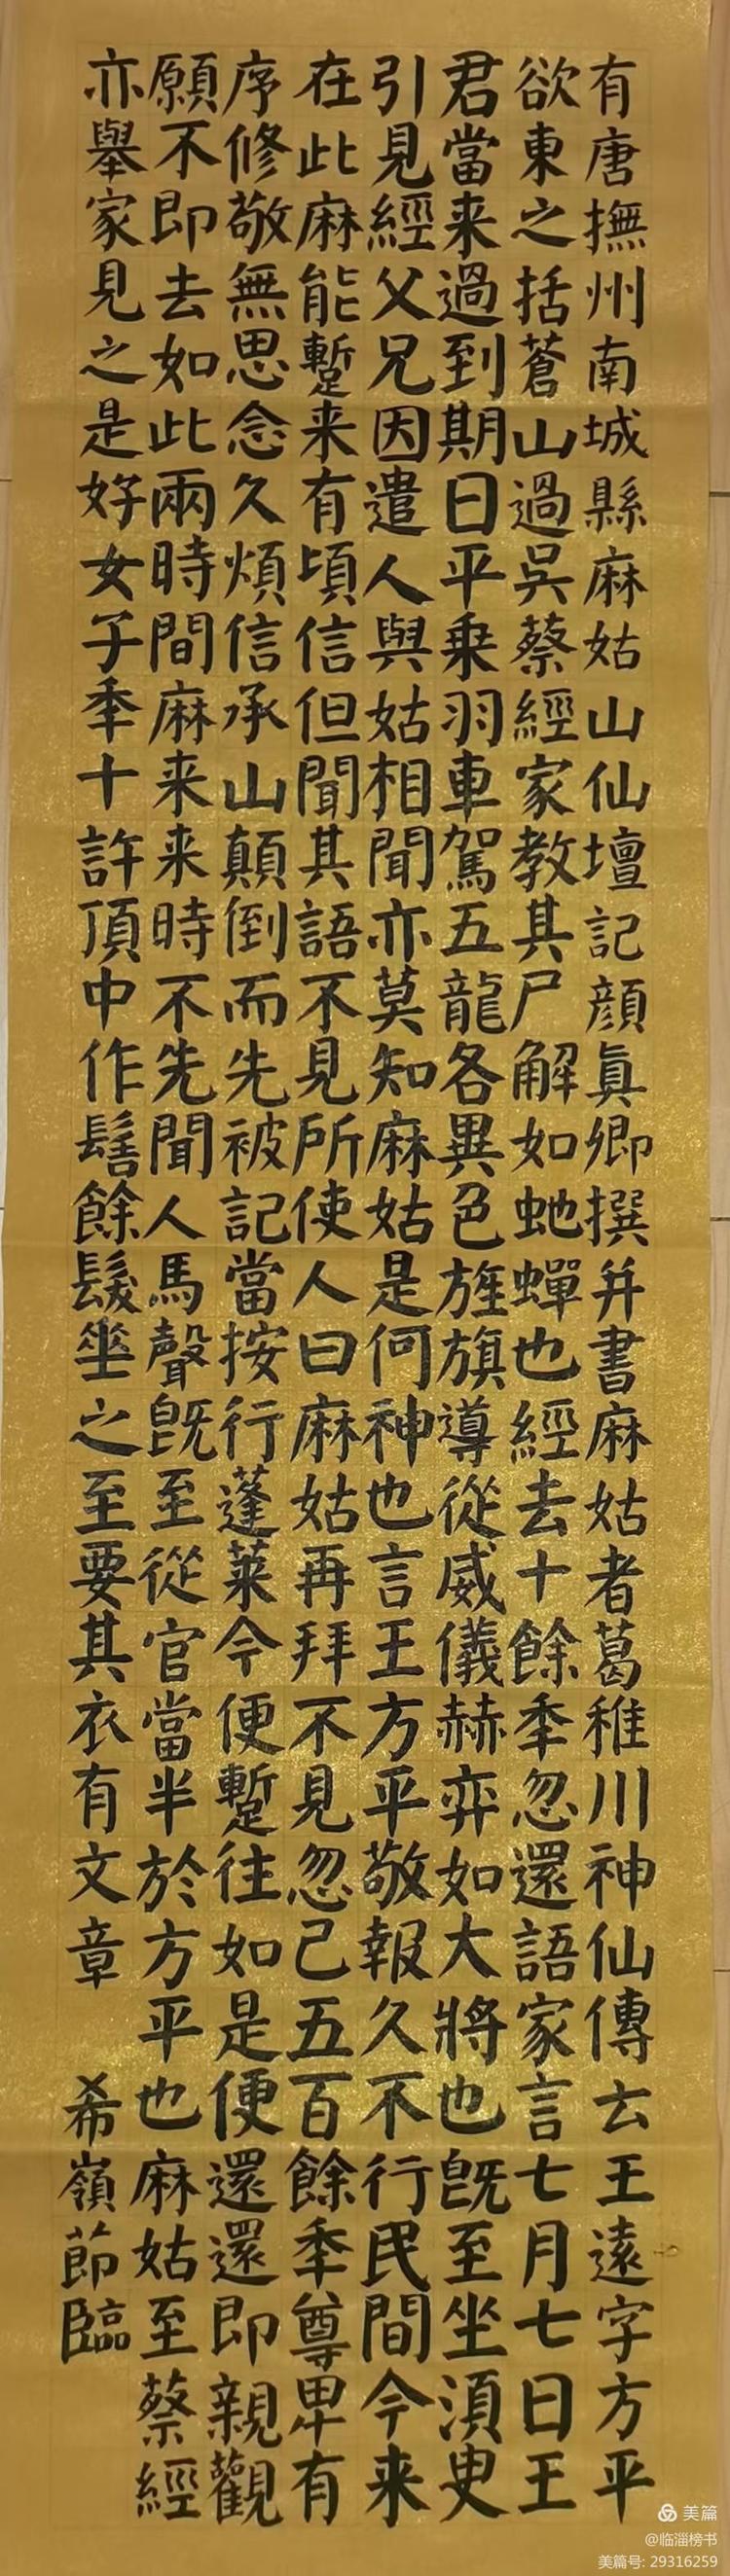 有唐撫州南城縣麻姑山仙壇記顔真卿撰并書麻姑者葛稚川神仙傳云王遠字方平
欲東之括蒼山過吳蔡經家教其尸解如虵蟬也經去十餘秊忽還語家言七月七日王
君當来過到期日平乗羽車駕五龍各異色旌旗導從威儀赫弈如大將也旣至坐湏臾
引見經父兄因遣人與姑相聞亦莫知麻姑是何神也言王方平敬報久不行民間今来
在此麻能蹔来有頃信但聞其語不見所使人曰麻姑再拜不見忽己五百餘秊尊卑有
序修敬無思念久煩信承山顛倒而先被記當按行蓬萊今便蹔往如是便還還即親觀
願不即去如此兩時間麻来来時不先聞人馬聲旣至從官當半於方平也麻姑至蔡經
亦舉家見之是好女子秊十許頂中作髻餘髮垂之至要其衣有文章
希嶺節臨
美篇
@临淄榜书
美篇号: 29316259